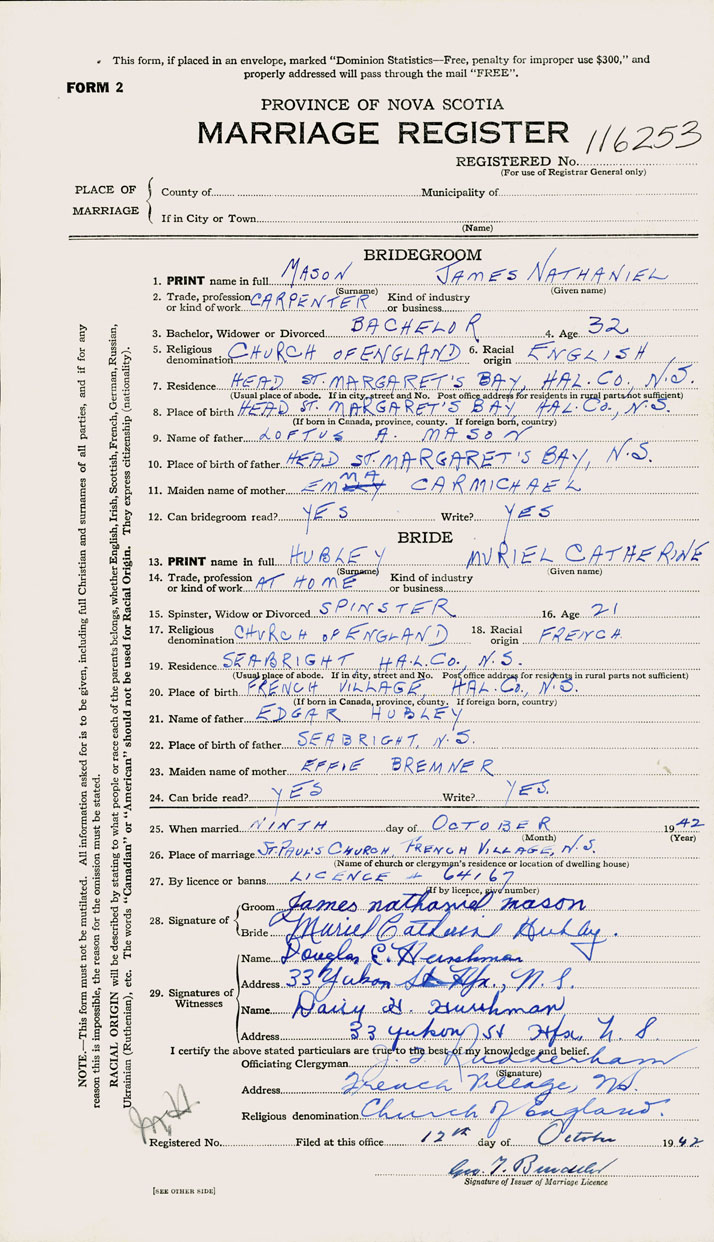 This form, if placed in an envelope, marked "Dominion Statistics—Free, penalty for improper use $300," and
properly addressed will pass through the mail "FREE".
FORM 2
PROVINCE OF NOVA SCOTIA
MARRIAGE REGISTER 116253
REGISTERED No.
(For use of Registrar General only)
PLACE OF MARRIAGE
County of Municipality of
If in City or Town
(Name)
BRIDEGROOM
1. PRINT name in full MASON JAMES NATHANIEL
(Surname) (Given name)
2. Trade, profession or kind of work CARPENTER Kind of industry or business
3. Bachelor, Widower or Divorced BACHELOR 4. Age 32
5. Religious denomination CHURCH OF ENGLAND 6. Racial origin ENGLISH
7. Residence HEAD ST. MARGARET'S BAY, HAL. CO., N.S.
(Usual place of abode. If in city, street and No. Post office address for residents in rural parts not sufficient)
8. Place of birth HEAD ST. MARGARET'S BAY, HAL. CO., N.S.
(If born in Canada, province, county. If foreign born, country)
9. Name of father LOFTUS A. MASON
10. Place of birth of father HEAD ST. MARGARET'S BAY, N.S.
11. Maiden name of mother EMMA CARMICHAEL
12. Can bridegroom read? YES Write? YES
BRIDE
13. PRINT name in full HUBLEY MURIEL CATHERINE
(Surname) (Given name)
14. Trade, profession or kind of work AT HOME Kind of industry or business
15. Spinster, Widow or Divorced SPINSTER 16. Age 21
17. Religious denomination CHURCH OF ENGLAND 18. Racial origin FRENCH
19. Residence SEABRIGHT HAL. CO., N.S.
(Usual place of abode. If in city, street and No. Post office address for residents in rural parts not sufficient)
20. Place of birth FRENCH VILLAGE, HAL. CO., N.S.
(If born in Canada, province, county. If foreign born, country)
21. Name of father EDGAR HUBLEY
22. Place of birth of father SEABRIGHT, N.S.
23. Maiden name of mother EFFIE BREMNER
24. Can bride read? YES Write? YES.
25. When married NINTH day of OCTOBER 1942
(Month) (Year)
26. Place of marriage ST. PAUL'S CHURCH, FRENCH VILLAGE, N.S.
(Name of church or clergyman's residence or location of dwelling house)
27. By licence or banns LICENCE 64167
(If by licence, give number)
28. Signature of
Groom James nathaniel mason
Bride Muriel Catherine Hubley.
29. Signatures of Witnesses
Name Douglas E. Hershman
Address 33 Yukon St Hfx., N.S.
Name Daisy Hershman
Address 33 Yukon St Hfx, N.S.
I certify the above stated particulars are true to the best of my knowledge and belief.
Officiating Clergyman Rudderham
(Signature)
Address French Village, NS.
Religious denomination Church of England.
Registered No. Filed at this office 12th day of October 1942
Geo. T.
Signature of Issuer of Marriage Licence
[SEE OTHER SIDE]
NOTE.—This form must not be mutilated. All information asked for is to be given, including full Christian and surnames of all parties, and if for any
reason this is impossible, the reason for the omission must be stated.
RACIAL ORIGIN will be described by stating to what people or race each of the parents belongs, whether English, Irish, Scottish, French, German, Russian,
Ukrainian (Ruthenian), etc. The words "Canadian" or "American" should not be used for Racial Origin. They express citizenship (nationality).